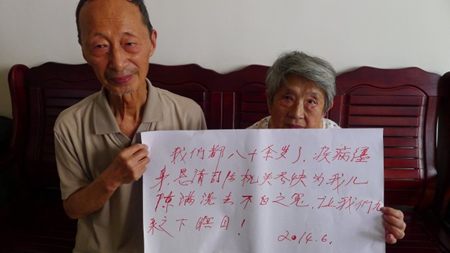 我们都八十余岁了、疾病缠
身,恳请司法机关尽快为我儿
陈满洗去不白之冤,让我们九
泉之下瞑目!
2014.6.